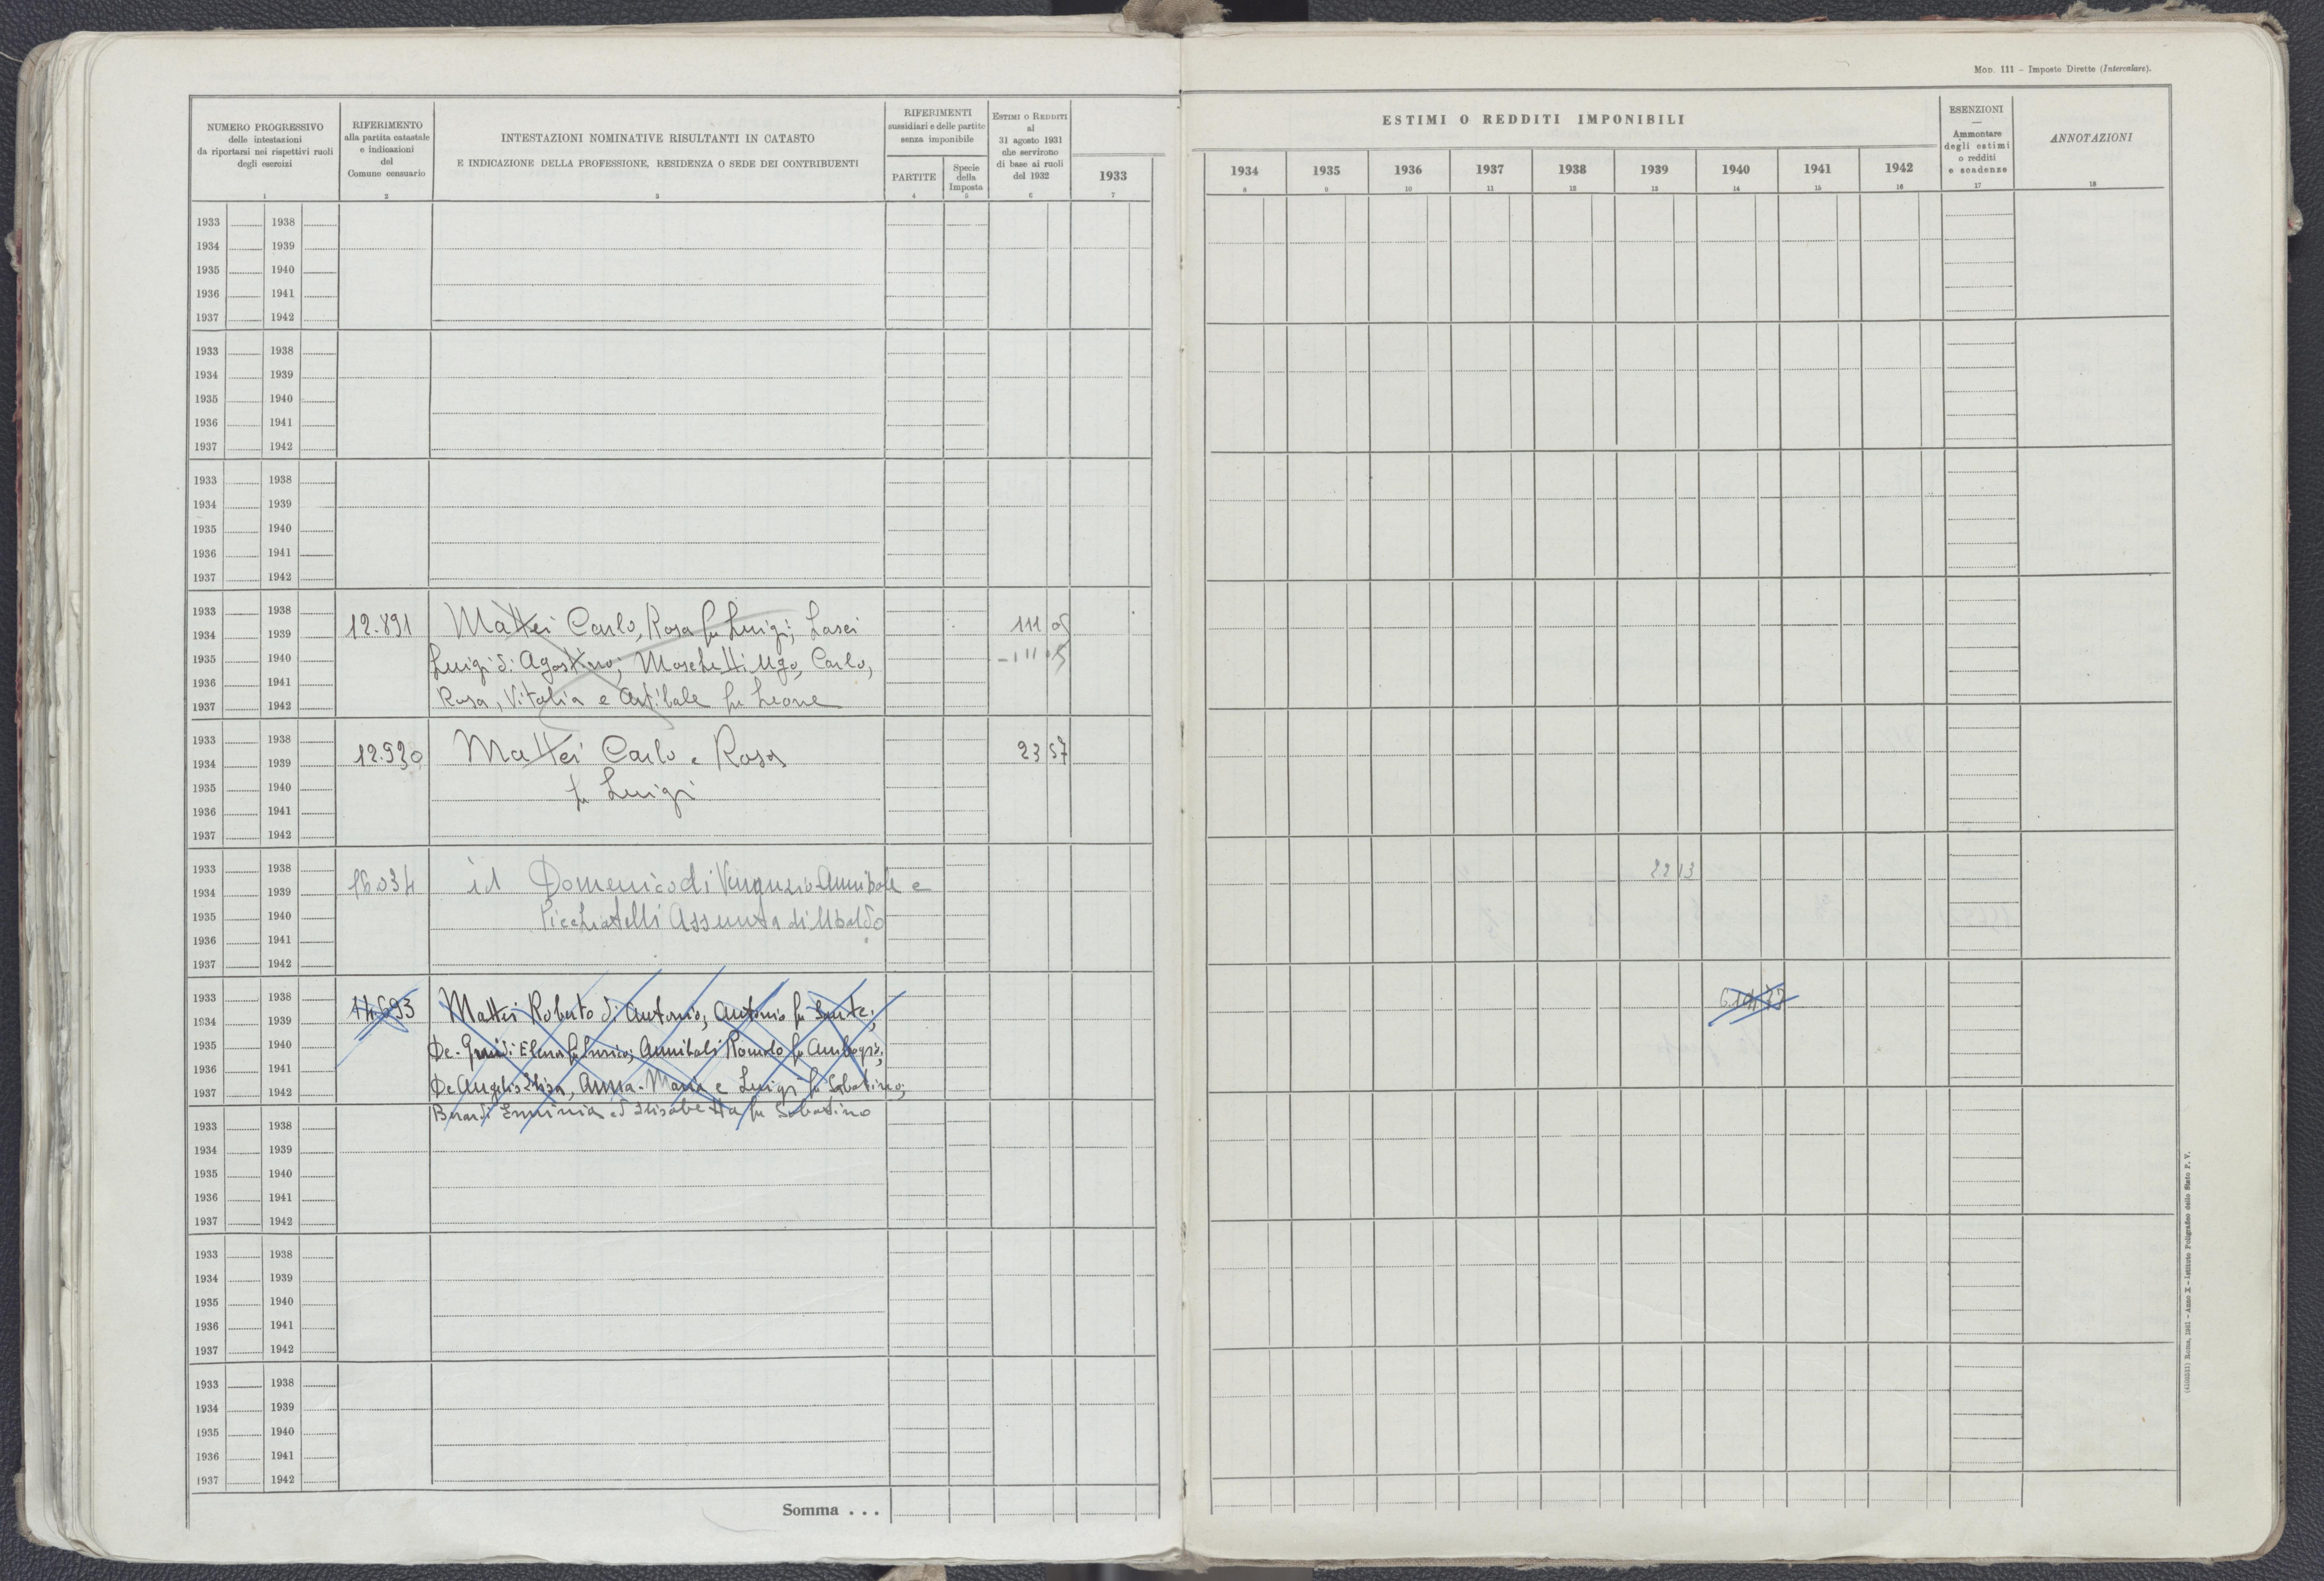 MOD. 111 – Imposte Dirette (Intercalare).
NUMERO PROGRESSIVO
delle intestazioni
da riportarsi nei rispettivi ruoli
degli esercizi
1
RIFERIMENTO
alla partita catastale
e indicazioni
del
Comune censuario
2
INTESTAZIONI NOMINATIVE RISULTANTI IN CATASTO
E INDICAZIONE DELLA PROFESSIONE, RESIDENZA O SEDE DEI CONTRIBUENTI
3
RIFERIMENTI
sussidiari e delle partite
senza imponibile
PARTITE
4
Specie
della
Imposta
5
ESTIMI O REDDITI
al
31 agosto 1931
che servirono
di base ai ruoli
del 1932
6
1933
7
ESTIMI O REDDITI IMPONIBILI
1934 1935 1936 1937 1938 1939 1940 1941 1942
8 9 10 11 12 13 14 15 16
ESENZIONI
—
Ammontare
degli estimi
o redditi
e scadenze
17
ANNOTAZIONI
18
1933 1938
1934 1939
1935 1940
1936 1941
1937 1942
1933 1938
1934 1939
1935 1940
1936 1941
1937 1942
1933 1938
1934 1939
1935 1940
1936 1941
1937 1942
1933 1938
1934 1939
1935 1940
1936 1941
1937 1942
12.891 Mattei Carlo, Rosa fu Luigi; Lasci 111 05
Luigi di Agostino; Moschetti Ugo, Carlo, - 111 05
Rosa, Vitalia e fu Leone
1933 1938
1934 1939
1935 1940
1936 1941
1937 1942
12.930 Mattei Carlo e Rosa 23 57
fu Luigi
1933 1938
1934 1939
1935 1940
1936 1941
1937 1942
16034 id Domenico di Annibale e 22 13
Picchiatelli Assunta di Ubaldo
1933 1938
1934 1939
1935 1940
1936 1941
1937 1942
14693 Mattei Roberto di Antonio, Antonio fu Sante;
De- Elena fu Annibali Romolo fu
De Angelis Elisa, Anna-Maria e Luigi fu Sabatino;
Berardi Erminia ed Elisabetta fu Sabatino
1933 1938
1934 1939
1935 1940
1936 1941
1937 1942
1933 1938
1934 1939
1935 1940
1936 1941
1937 1942
1933 1938
1934 1939
1935 1940
1936 1941
1937 1942
Somma . . .
Roma, 1931 – Anno X – Istituto Poligrafico dello Stato P. V.